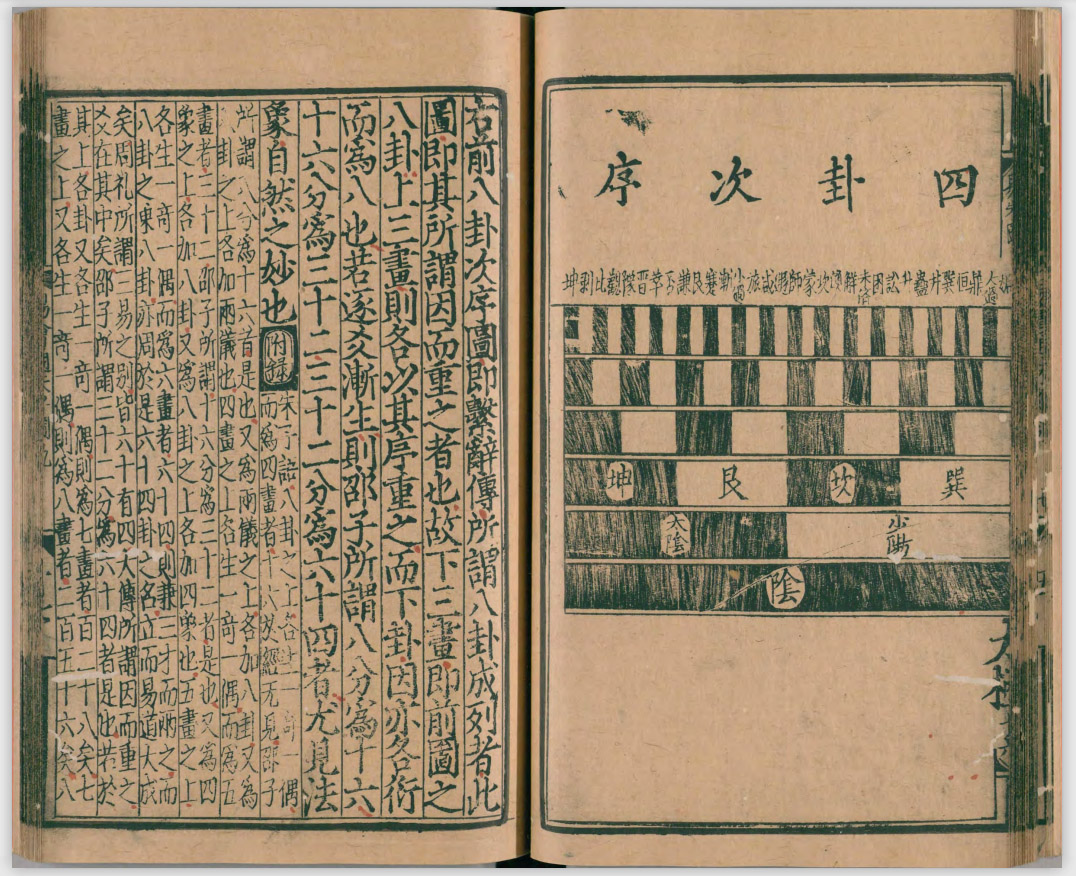 四卦次序
大過 鼎 恒 巽 井 蠱 升 訟 困 未濟 解 渙 坎 蒙 師 遯 咸 旅 小過 漸 蹇 艮 謙 否 萃 晉 豫 觀 比 剝 坤
巽 坎 艮 坤
少陽 太陰
陰
右前八卦次序圖即繫辭傳所謂八卦成列者此
圖即其所謂因而重之者也故下三畫即前圖之
八卦上三畫則各以其序重之而下卦因亦各衍
而為八也若逐爻漸生則邵子所謂八分為十六
十六分為三十二三十二分為六十四者尤見法
象自然之妙也附錄朱子語八卦之上各生一奇一偶
而為四畫者十六於經无見邵子
所謂八分為十六者是也又為兩儀之上各加八卦又為
八卦之上各加兩儀也四畫之上各生一奇一偶而為五
畫者三十二邵子所謂十六分為三十二者是也又為四
象之上各加八卦又為八卦之上各加四象也五畫之上
各生一奇一偶而為六畫者六十四則兼三才而兩之而
八卦之乘八卦亦周於是六十四卦之名立而易道大成
矣周礼所謂三易之別皆六十有四大傳所謂因而重之
爻在其中矣邵子所謂三十二分為六十四者是也若於
其上各卦又各生一奇一偶則為七畫者百二十八矣七
畫之上又各生一奇一偶則為八畫者二百五十六矣八